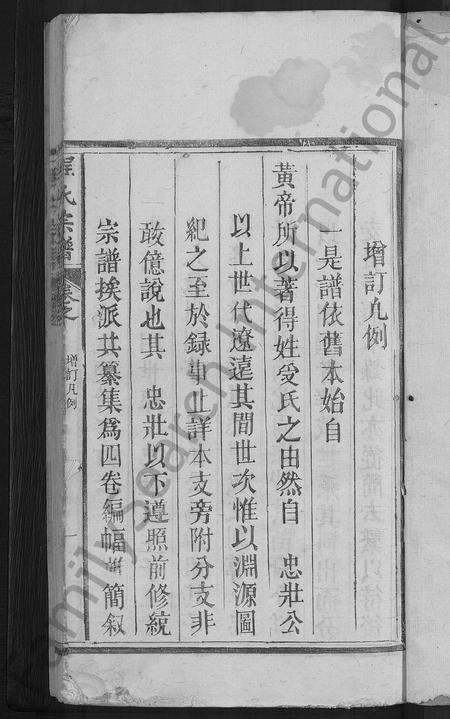 增訂凡例
一是譜依舊本始自
黃帝所以著得姓受氏之由然自 忠壯公
以上世代遼遠其間世次惟以淵源圖
紀之至於録事止詳本支旁附分支非
敢億說也其 忠壯以下遵照前修統
宗譜挨派共纂集爲四卷編幅 簡叙
程氏宗譜 卷之
增訂凡例
一
familysearch International